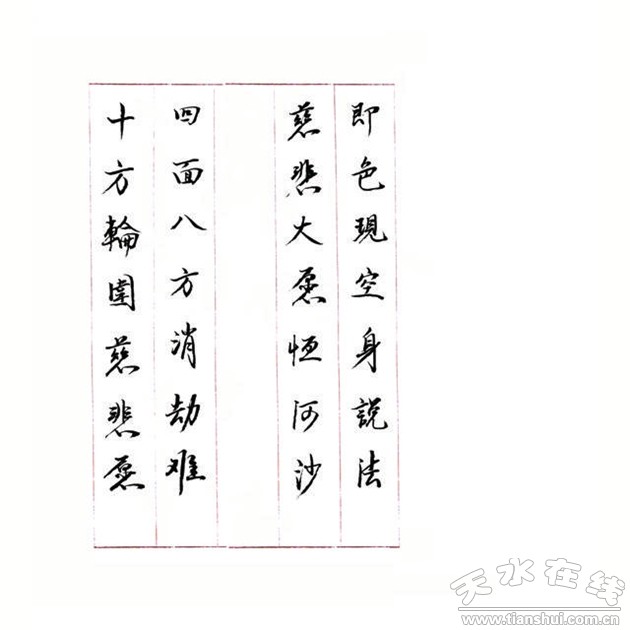 即色現空身說法
慈悲大愿恒河沙
四面八方消劫难
十方輪圍慈悲愿
天水在线
www.tianshui.com.cn